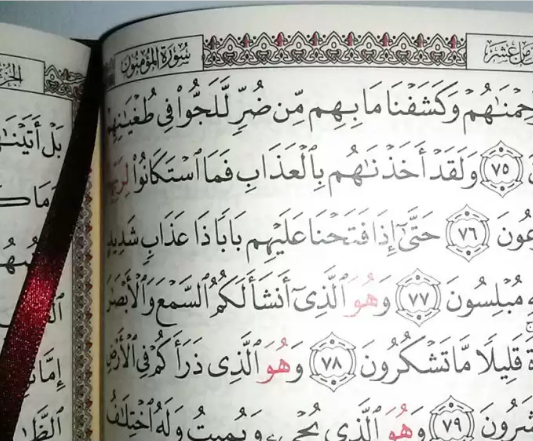 سُورَةُ المُؤْمِنُونَ
وَكَشَفْنَا مَا بِهِم مِّن ضُرٍّ لَّلَجُّوا۟ فِى طُغْيَٰنِهِمْ
٧٥ وَلَقَدْ أَخَذْنَٰهُم بِٱلْعَذَابِ فَمَا ٱسْتَكَانُوا۟
٧٦ حَتَّىٰٓ إِذَا فَتَحْنَا عَلَيْهِم بَابًا ذَا عَذَابٍ شَدِيدٍ
مُبْلِسُونَ ٧٧ وَهُوَ ٱلَّذِىٓ أَنشَأَ لَكُمُ ٱلسَّمْعَ وَٱلْأَبْصَٰرَ
قَلِيلًا مَّا تَشْكُرُونَ ٧٨ وَهُوَ ٱلَّذِى ذَرَأَكُمْ فِى ٱلْأَرْضِ
٧٩ وَهُوَ ٱلَّذِى يُحْىِۦ وَيُمِيتُ وَلَهُ ٱخْتِلَٰفُ
بَلْ